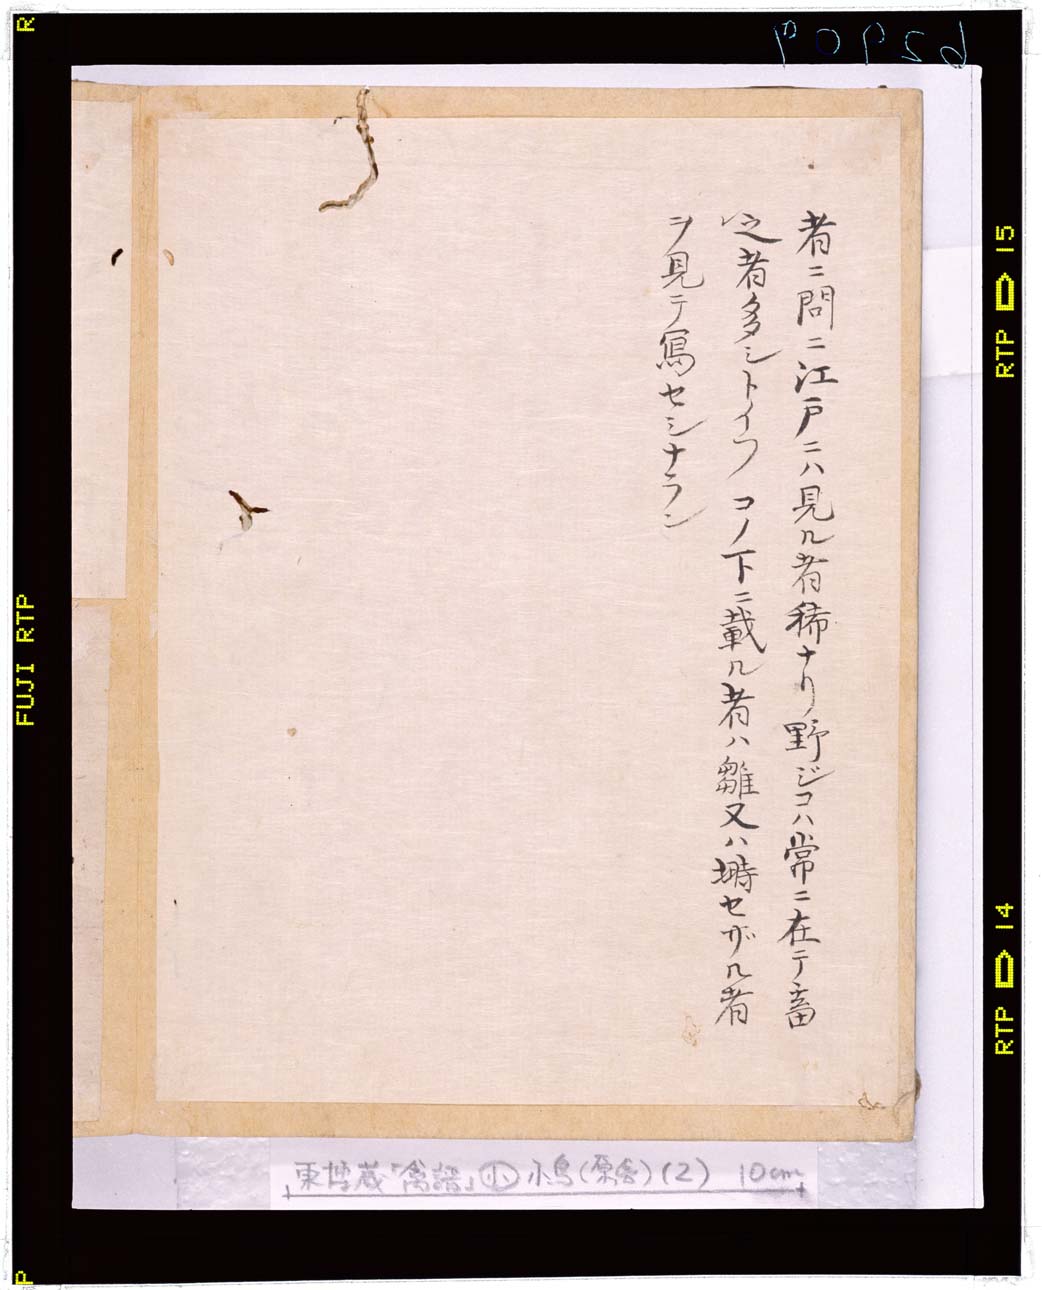 者ニ問ニ江戸ニハ見ル者稀ナリ野ジコハ常ニ在テ畜
之者多シトイフ コノ下ニ載ル者ハ雛又ハ塒セザル者
ヲ見テ寫セシナラン
東博蔵「禽譜」小 小鳥(原舎)(2) 10cm
62909
R
FUJI RTP
P
RTP 15
RTP 14